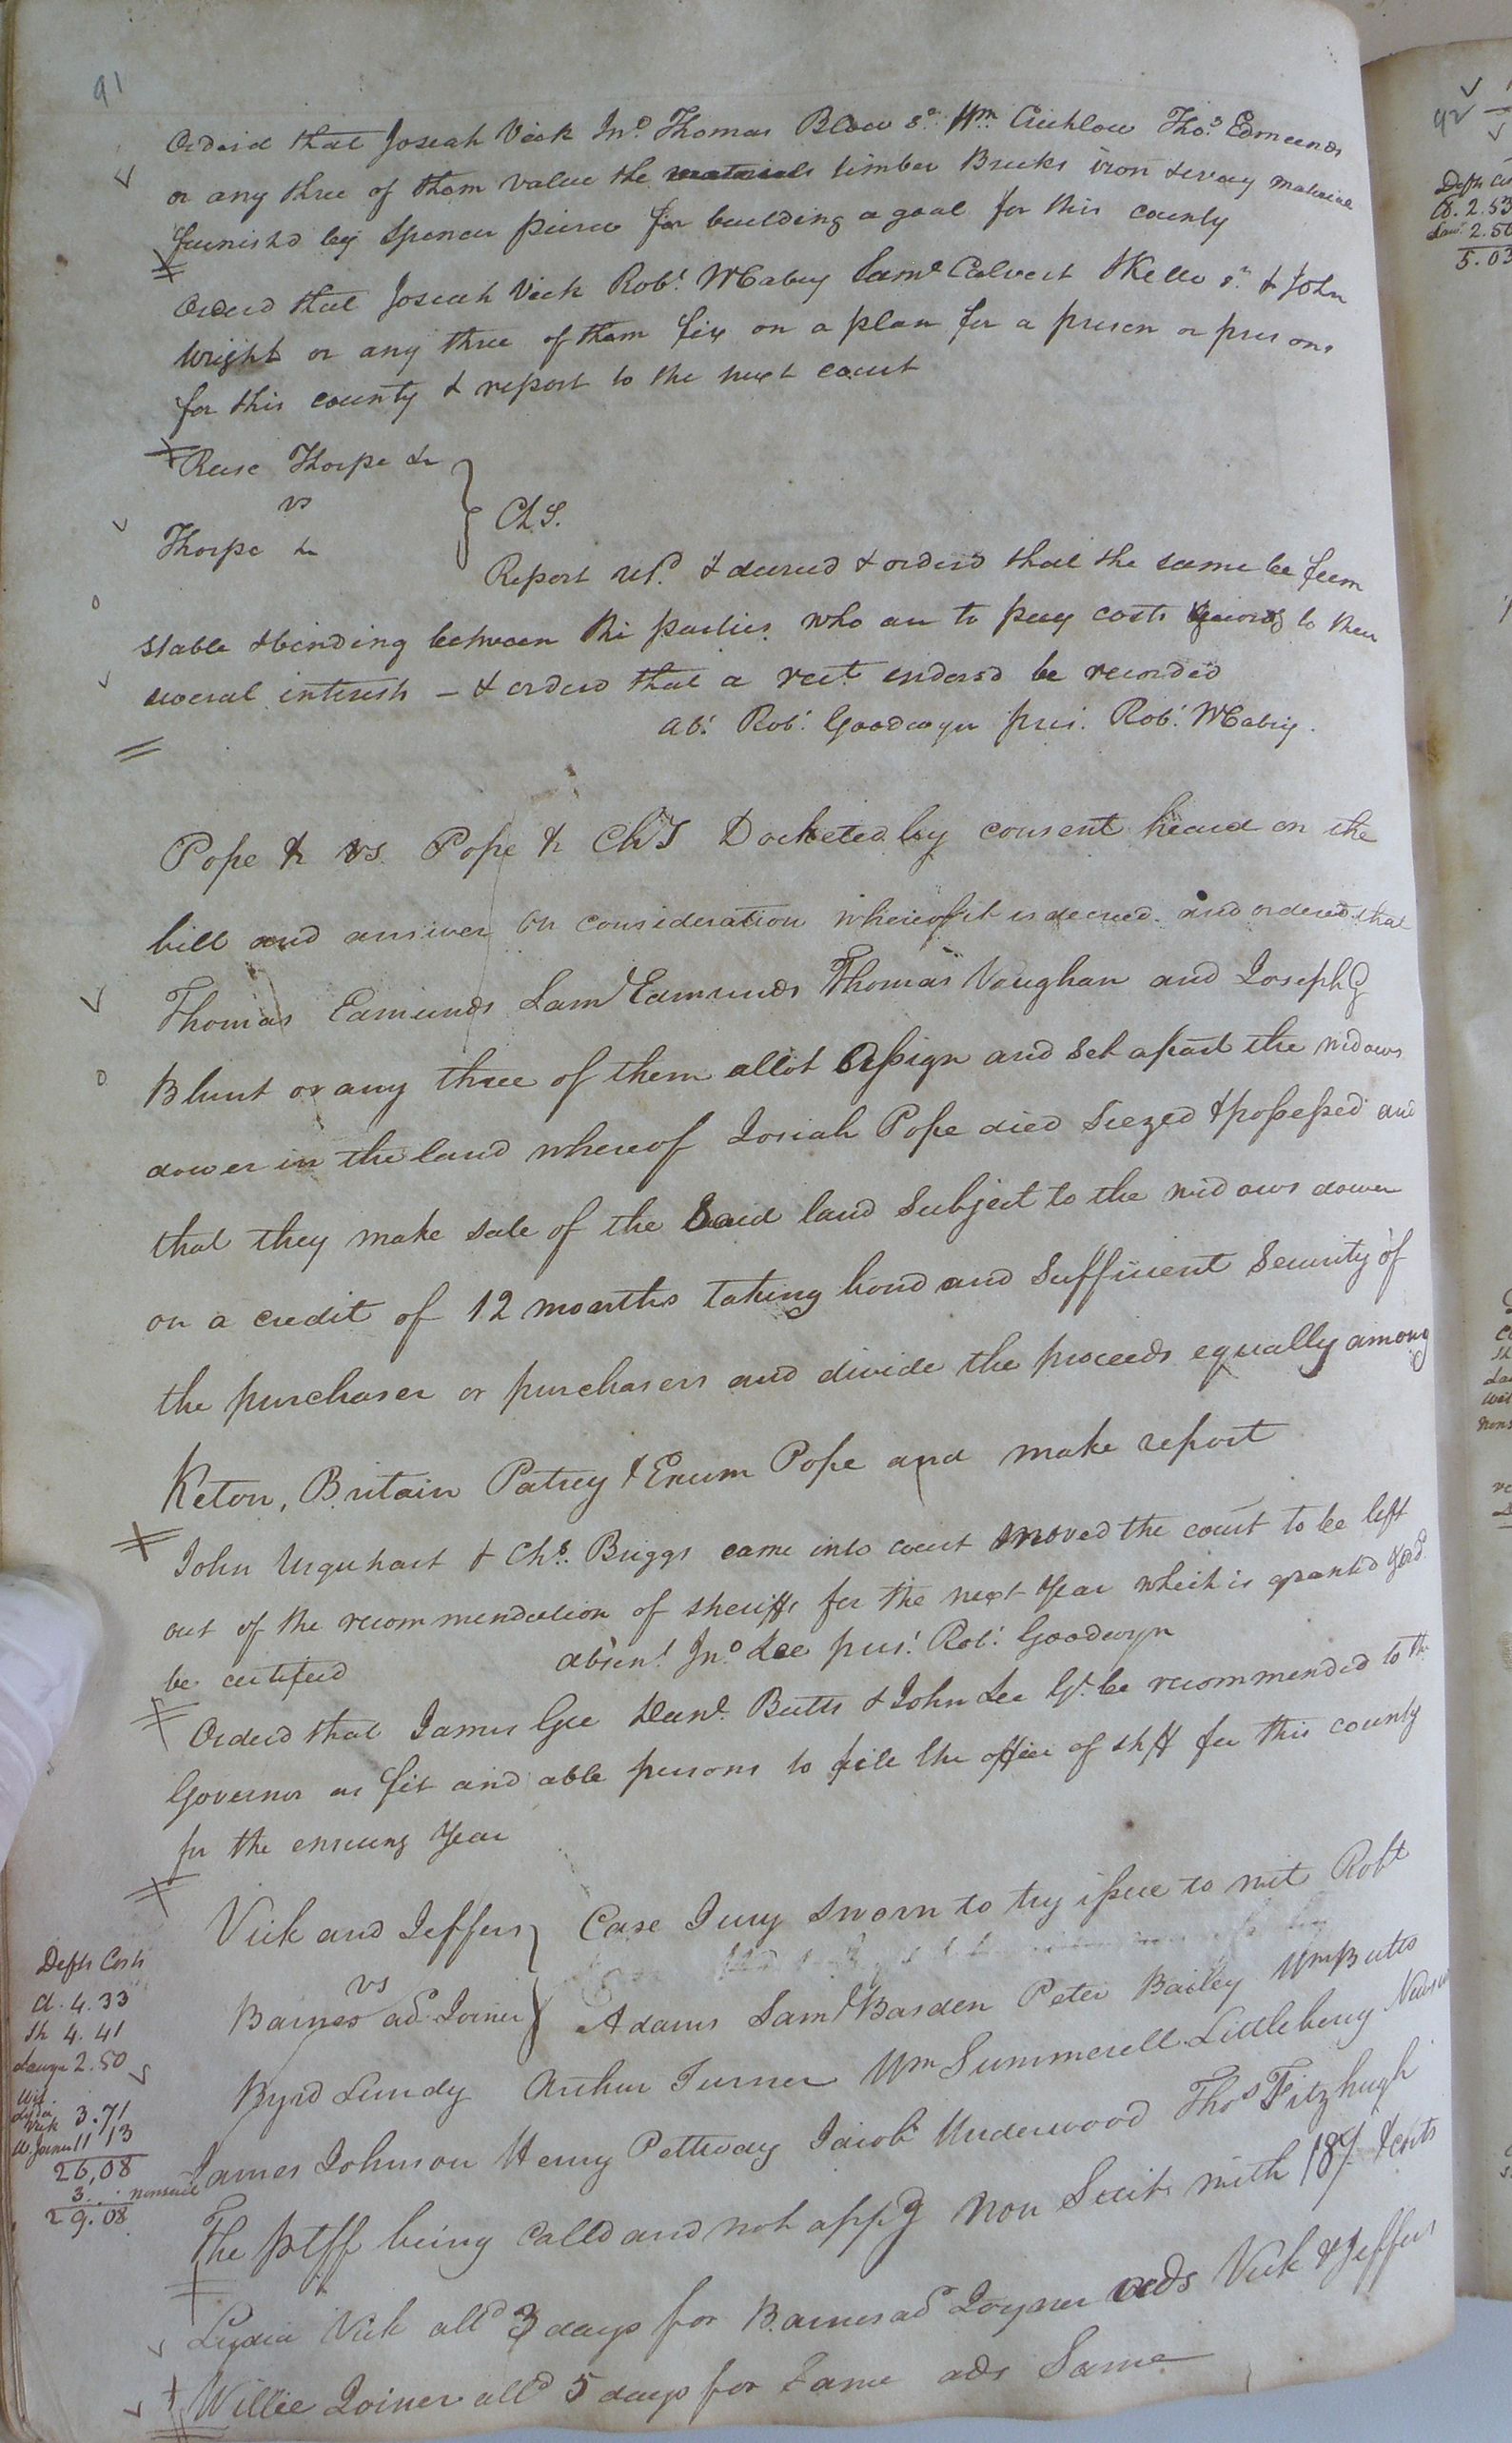 91
Orderd that Josiah Vick Jno. Thomas Blow Sr. Wm. Crichlow Thos. Edmunds
or any three of them value the materials timber Bricks iron & every material
furnishd by Spencer pierce for building a goal for this county
Orderd that Josiah Vick Robt. Mabry Saml Calvert Kello Sr. & John
Wright or any three of them fix on a plan for a prison or prisons
for this county & report to the next court
Reese Thorpe &c
vs
Thorpe &c
ChS.
Report & decreed & orderd that the same be firm
stable & binding between the parties who are to pay costs to their
several interests – & orderd that a rect. endorsd be recorded
abt. Robt. Goodwyn pres. Robt. Mabry.
Pope &c vs. Pope &c ChS Docketed by consent heard on the
bill and answer on consideration whereof it is decreed and ordered that
Thomas Edmunds Saml Edmunds Thomas Vaughan and Joseph G
Blunt or any three of them allot assign and set apart the widows
dower in the land whereof Josiah Pope died Siezed & possessed and
that they make sale of the Said land Subject to the widows dower
on a credit of 12 months taking bond and Sufficient Security of
the purchaser or purchasers and divide the proceeds equally among
Keton, Britain Patsey & Exum Pope and make report
John Urquhart & Chs. Briggs came into court moved the court to be left
out of the recommendation of sheriffs for the next year which is granted & ord.
be certified absent Jno. Lee prest. Robt. Goodwyn
Orderd that James Gee Danl. Butts & John Lee Gt. be recommended to the
Governor as fit and able persons to fill the office of shff for this county
for the ensuing year
Vick and Jeffers
vs
Barnes ad Joiner
Case Jury sworn to try issue to wit Robt
Adams Saml Barden Peter Bailey Wm Butts
Byrd Lundy Arthur Turner Wm Summerell Littleberry
James Johnson Henry Pettway Jacob Underwood Thos Fitzhugh
The ptff being calld and not appg non Suit with 18/ & costs
Lydia Vick alld 3 days for Barnes ad Joyner ads Vick & Jeffers
Willie Joiner alld 5 days for Same ads Same
Defts Costs
Cl. 4.33
Sh 4.41
Lawyr 2.50
Wit.
Lydia
Vick 3.71
W. Joiner 11 13
26,08
3. . nonsuit
29.08
92
Defts
Cl. 2.53
Law. 2.50
5.03